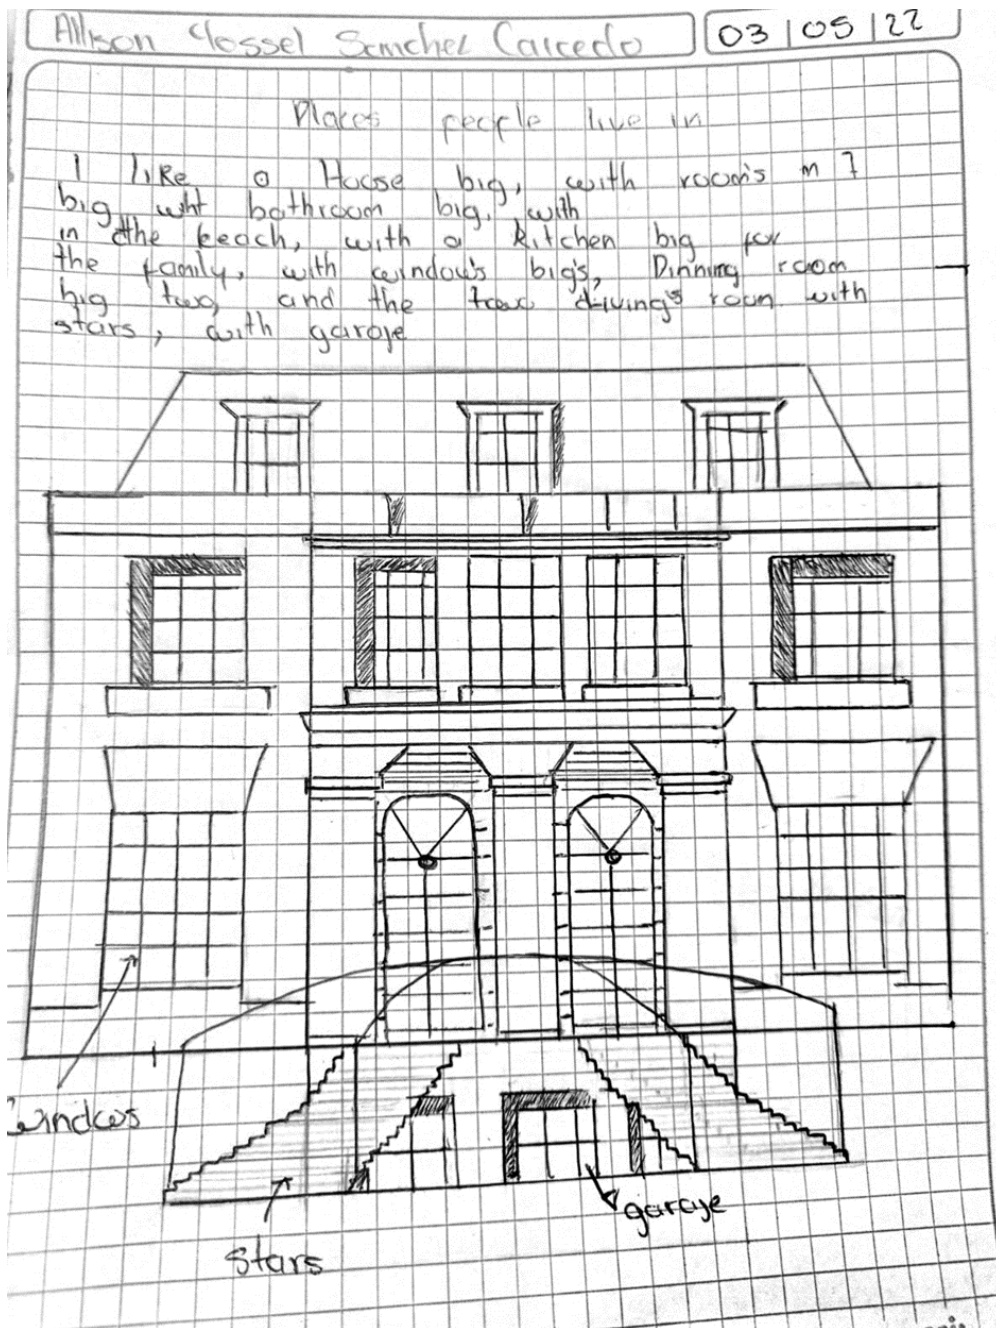 Allison Yossel Sanchez Caicedo
03/05/22
Places people live in
I like a House big, with room's in 7
big wht bathroom big, with
in the beach, with a kitchen big for
the family, with window's big's, Dinning room
big two, and the two living's room with
stars, with garaje
windows
garaje
stars